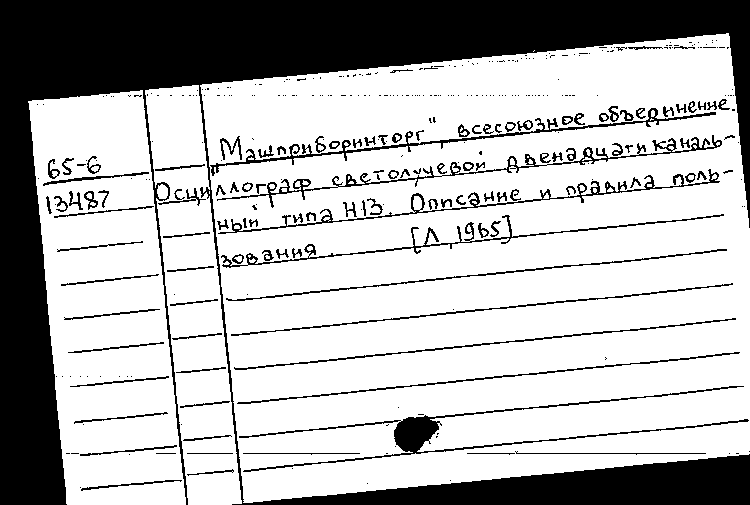 65-6
13487
"Машприборинторг", всесоюзное объединение.
Осциллограф светолучевой двенадцатиканаль-
ный типа Н13. Описание и правила поль-
зования. [Л, 1965]